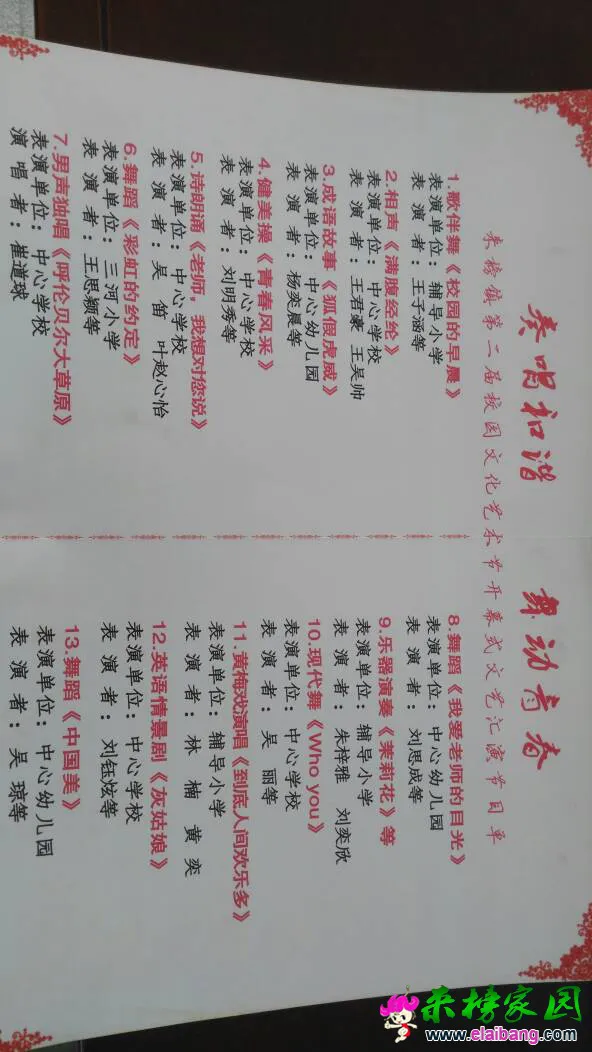 奏唱和谐 舞动青春
来榜镇第二届校园文化艺术节开幕式文艺汇演节目单
1.歌伴舞《校园的早晨》
表演单位：辅导小学
表 演 者：王子涵等
2.相声《满腹经纶》
表演单位：中心学校
表 演 者：王君豪 王吴帅
3.成语故事《狐假虎威》
表演单位：中心幼儿园
表 演 者：杨奕晨等
4.健美操《青春风采》
表演单位：中心学校
表 演 者：刘明秀等
5.诗朗诵《老师，我想对您说》
表演单位：中心学校
表 演 者：吴 笛 叶赵心怡
6.舞蹈《彩虹的约定》
表演单位：三河小学
表 演 者：王思颖等
7.男声独唱《呼伦贝尔大草原》
表演单位：中心学校
演 唱 者：崔道球
8.舞蹈《我爱老师的目光》
表演单位：中心幼儿园
表 演 者：刘思成等
9.乐器演奏《茉莉花》等
表演单位：辅导小学
表 演 者：朱梓雅 刘奕欣
10.现代舞《Who you》
表演单位：中心学校
表 演 者：吴 丽等
11.黄梅戏演唱《到底人间欢乐多》
表演单位：辅导小学
表 演 者：林 楠 黄 奕
12.英语情景剧《灰姑娘》
表演单位：中心学校
表 演 者：刘钰炫等
13.舞蹈《中国美》
表演单位：中心幼儿园
表 演 者：吴 琼等
来榜家园
www.elaibang.com